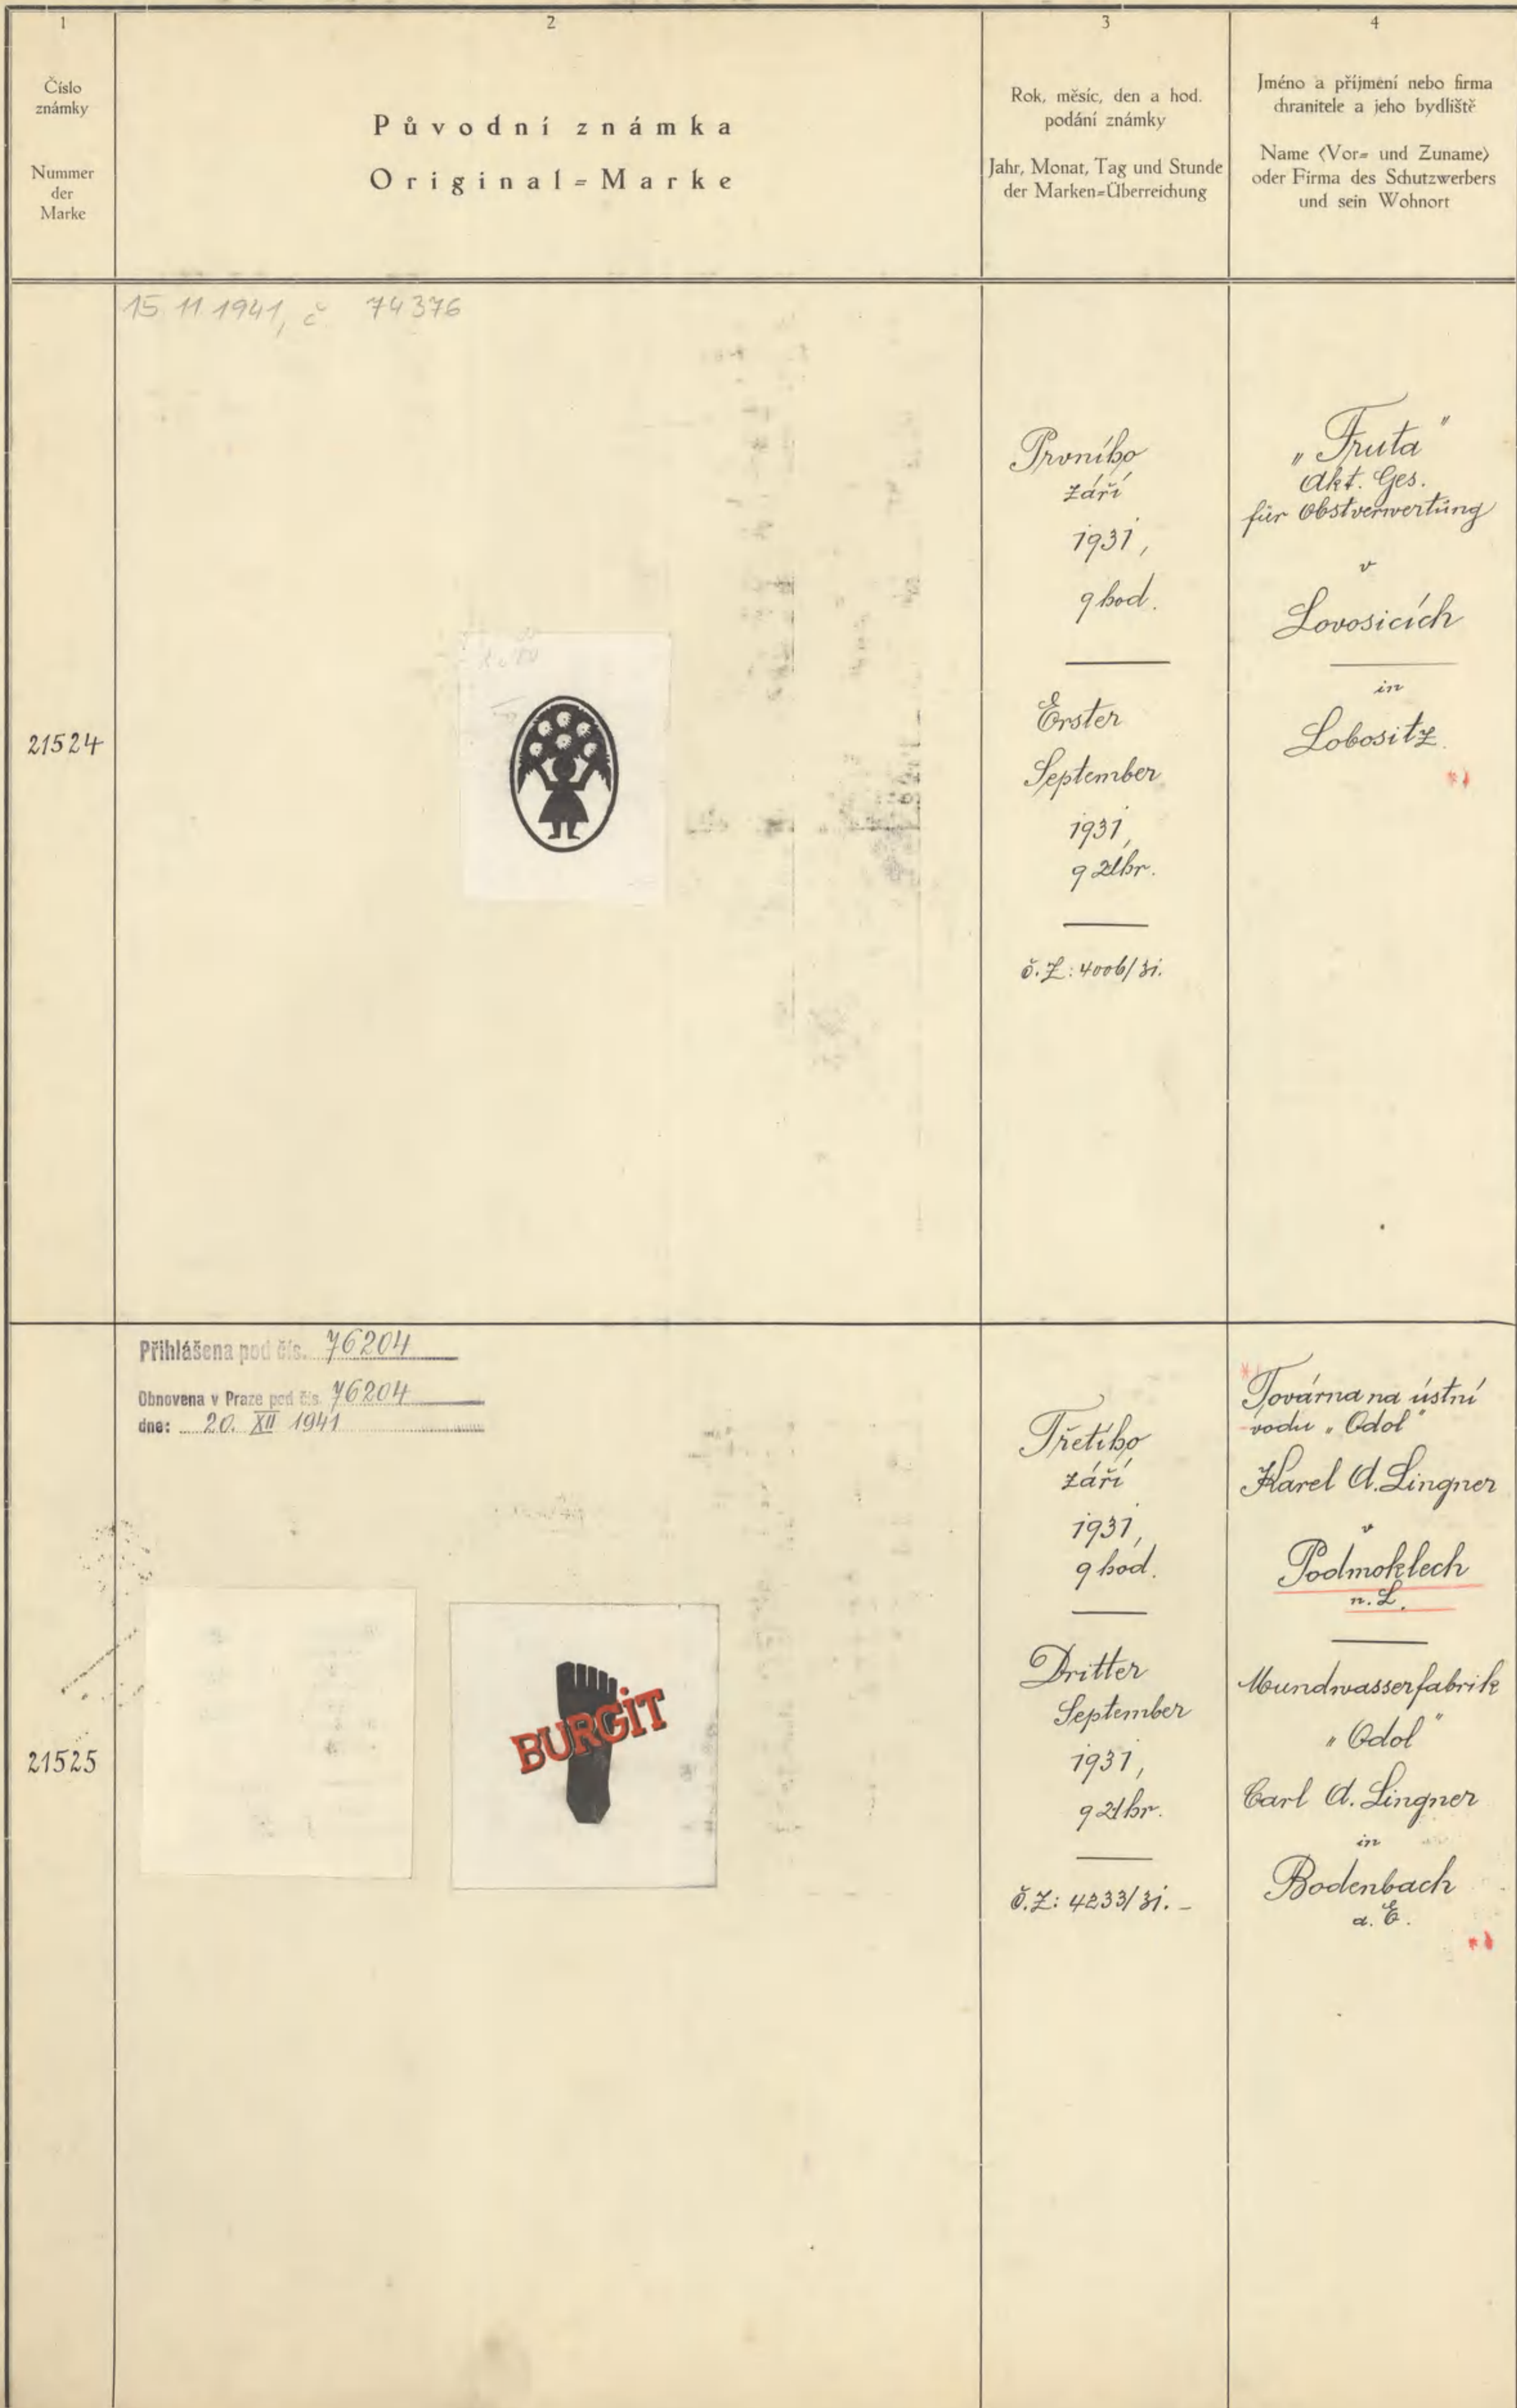 1
2
3
4
Číslo
známky
Nummer
der
Marke
Původní známka
Original=Marke
Rok, měsíc, den a hod.
podání známky
Jahr, Monat, Tag und Stunde
der Marken=Überreichung
Jméno a příjmení nebo firma
chranitele a jeho bydliště
Name <Vor= und Zuname>
oder Firma des Schutzwerbers
und sein Wohnort
21524
15 11 1941, č 74376
Prvního
září
1931,
9 hod.
Erster
September
1931,
9 Uhr.
č.Z: 4006/31.
„Fruta"
Akt. Ges.
für Obstverwertung
v
Lovosicích
in
Lobositz.
21525
Přihlášena pod čís. 76204
Obnovena v Praze pod čís. 76204
dne: 20. XII 1941
BURGIT
Třetího
září
1931,
9 hod.
Dritter
September
1931,
9 Uhr.
č.Z: 4233/31. -
Továrna na ústní
vodu „Odol"
Karel A. Lingner
v
Podmoklech
n. L.
Mundwasserfabrik
„Odol"
Carl A. Lingner
in
Bodenbach
a. E.